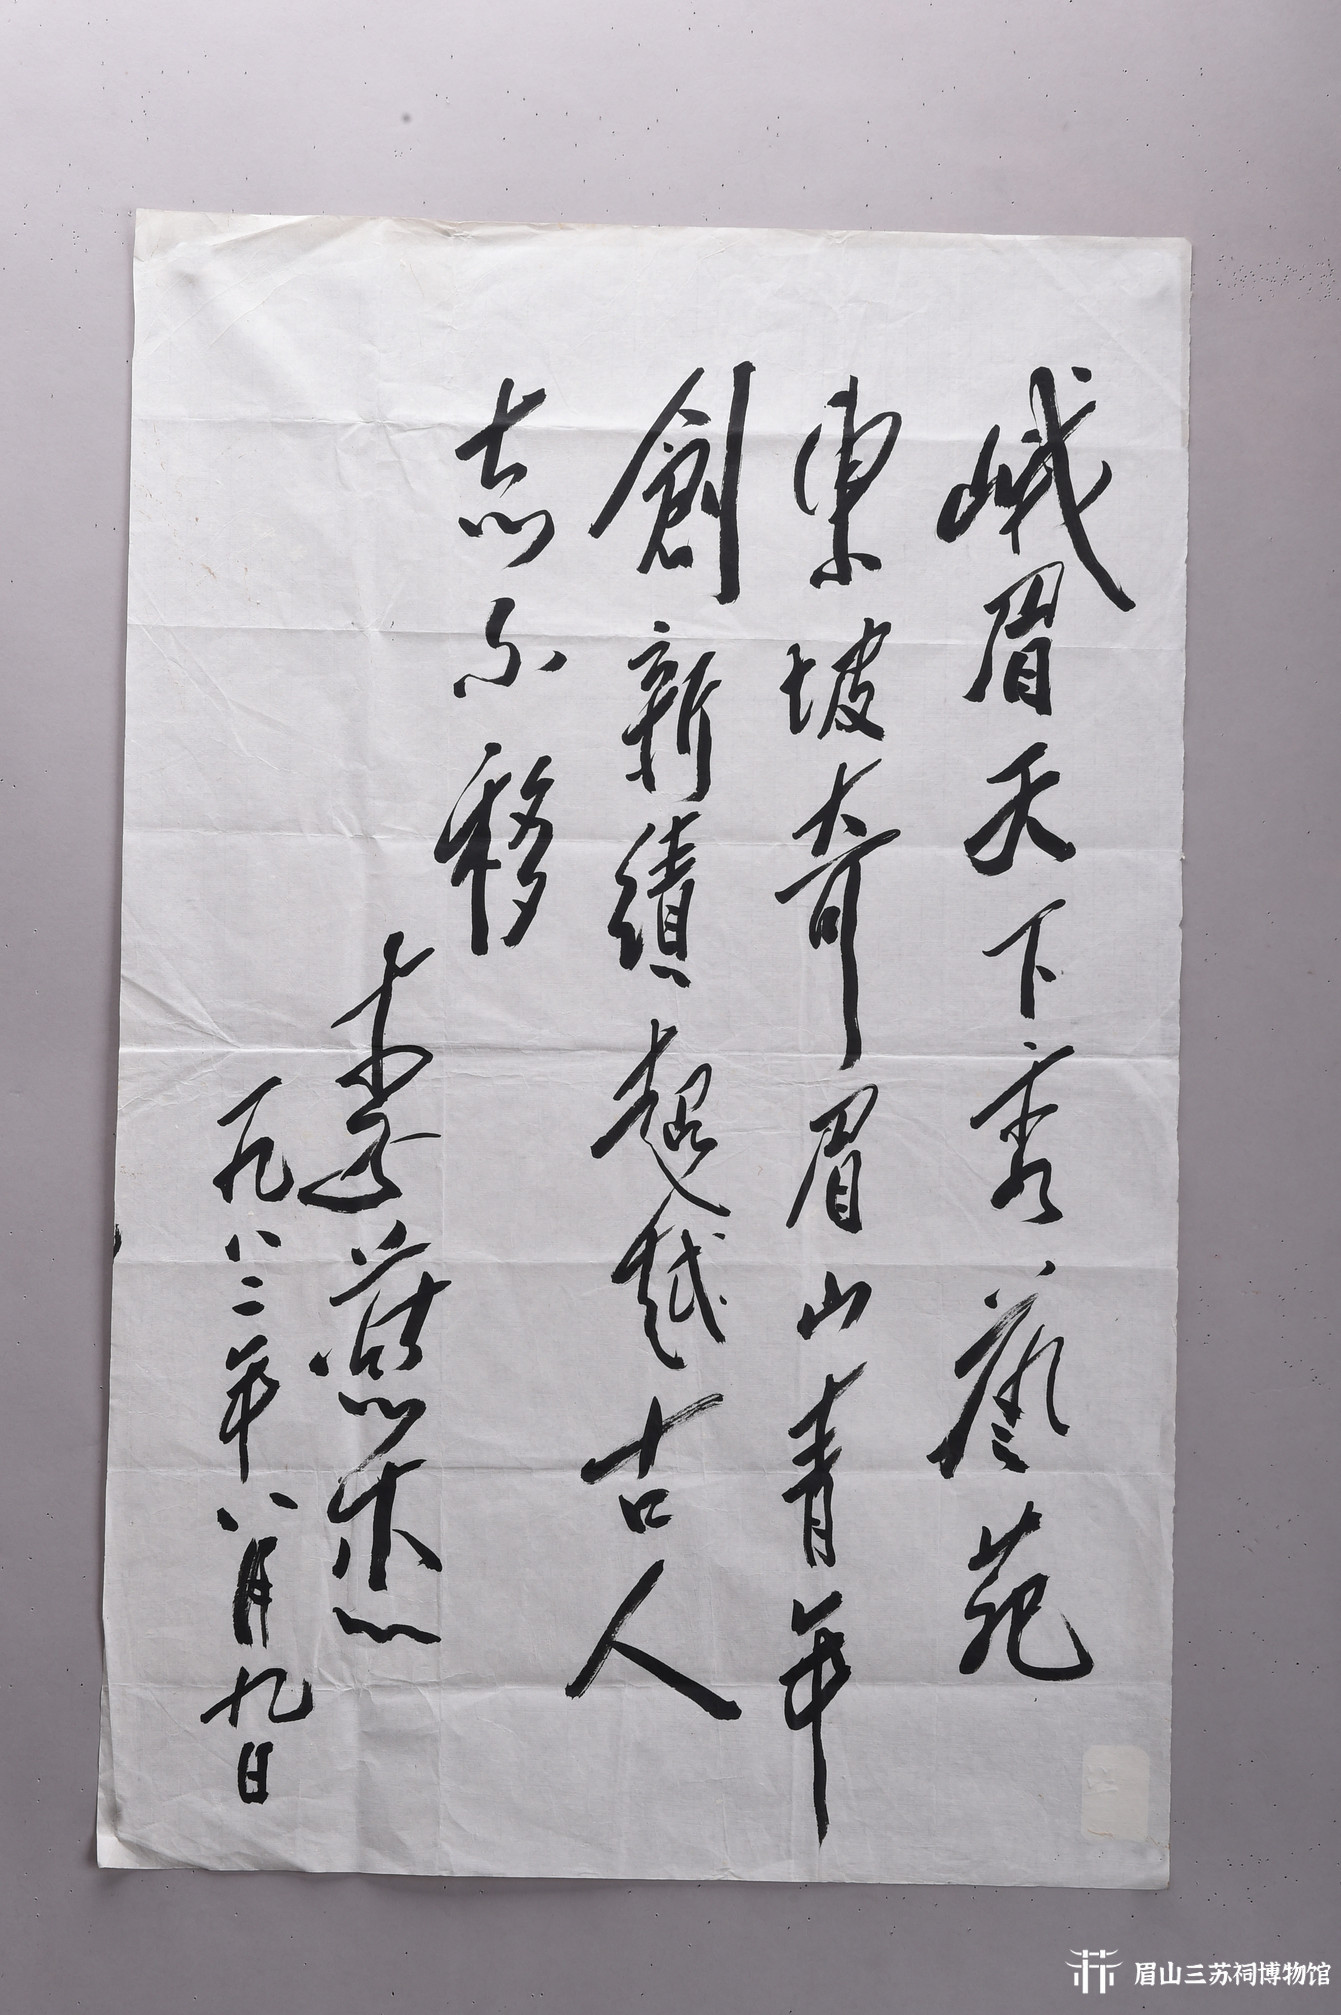 峨眉天下秀藝苑
東坡奇眉山青年
創新績超越古人
志不移
李燕杰
一九八二年八月九日
眉山三苏祠博物馆